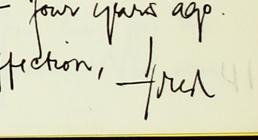 - four years ago.
ffection, Fred